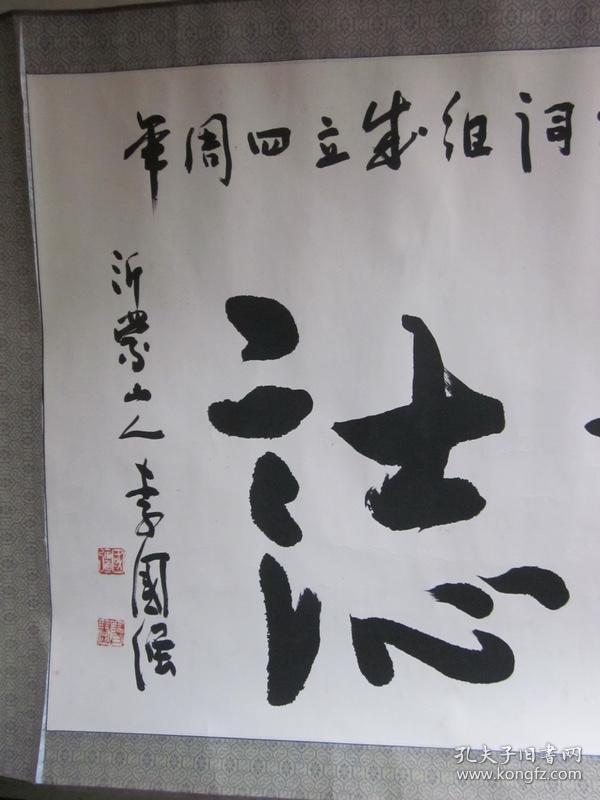 词组成立四周年
誌
沂蒙山人李國强
孔夫子旧书网
www.kongfz.com